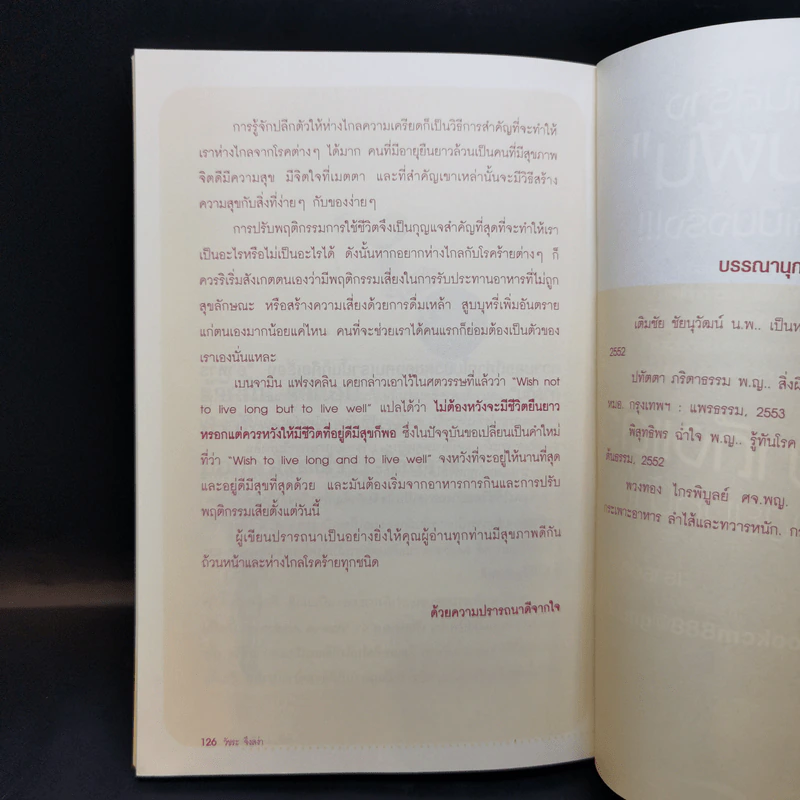 การรู้จักปลีกตัวให้ห่างไกลความเครียดก็เป็นวิธีการสำคัญที่จะทำให้
เราห่างไกลจากโรคต่างๆ ได้มาก คนที่มีอายุยืนยาวล้วนเป็นคนที่มีสุขภาพ
จิตดีมีความสุข มีจิตใจที่เมตตา และที่สำคัญเขาเหล่านั้นจะมีวิธีสร้าง
ความสุขกับสิ่งที่ง่ายๆ กับของง่ายๆ
การปรับพฤติกรรมการใช้ชีวิตจึงเป็นกุญแจสำคัญที่สุดที่จะทำให้เรา
เป็นอะไรหรือไม่เป็นอะไรได้ ดังนั้นหากอยากห่างไกลกับโรคร้ายต่างๆ ก็
ควรริเริ่มสังเกตตนเองว่ามีพฤติกรรมเสี่ยงในการรับประทานอาหารที่ไม่ถูก
สุขลักษณะ หรือสร้างความเสี่ยงด้วยการดื่มเหล้า สูบบุหรี่เพิ่มอันตราย
แก่ตนเองมากน้อยแค่ไหน คนที่จะช่วยเราได้คนแรกก็ย่อมต้องเป็นตัวของ
เราเองนั่นแหละ
เบนจามิน แฟรงคลิน เคยกล่าวเอาไว้ในศตวรรษที่แล้วว่า "Wish not
to live long but to live well" แปลได้ว่า ไม่ต้องหวังจะมีชีวิตยืนยาว
หรอกแต่ควรหวังให้มีชีวิตที่อยู่ดีมีสุขก็พอ ซึ่งในปัจจุบันขอเปลี่ยนเป็นคำใหม่
ที่ว่า "Wish to live long and to live well" จงหวังที่จะอยู่ให้นานที่สุด
และอยู่ดีมีสุขที่สุดด้วย และมันต้องเริ่มจากอาหารการกินและการปรับ
พฤติกรรมเสียตั้งแต่วันนี้
ผู้เขียนปรารถนาเป็นอย่างยิ่งให้คุณผู้อ่านทุกท่านมีสุขภาพดีกัน
ถ้วนหน้าและห่างไกลโรคร้ายทุกชนิด
ด้วยความปรารถนาดีจากใจ
126
บรรณานุก
เติมชัย ชัยนุวัฒน์ น.พ.. เป็นห
2552
ปทัตตา ภริตาธรรม พ.ญ.. สิ่งผิ
หมอ. กรุงเทพฯ : แพรธรรม, 2553
พิสุทธิพร ฉ่ำใจ พ.ญ.. รู้ทันโรค
ต้นธรรม, 2552
พวงทอง ไกรพิบูลย์ ศจ.พญ.
กระเพาะอาหาร ลำไส้และทวารหนัก. กร